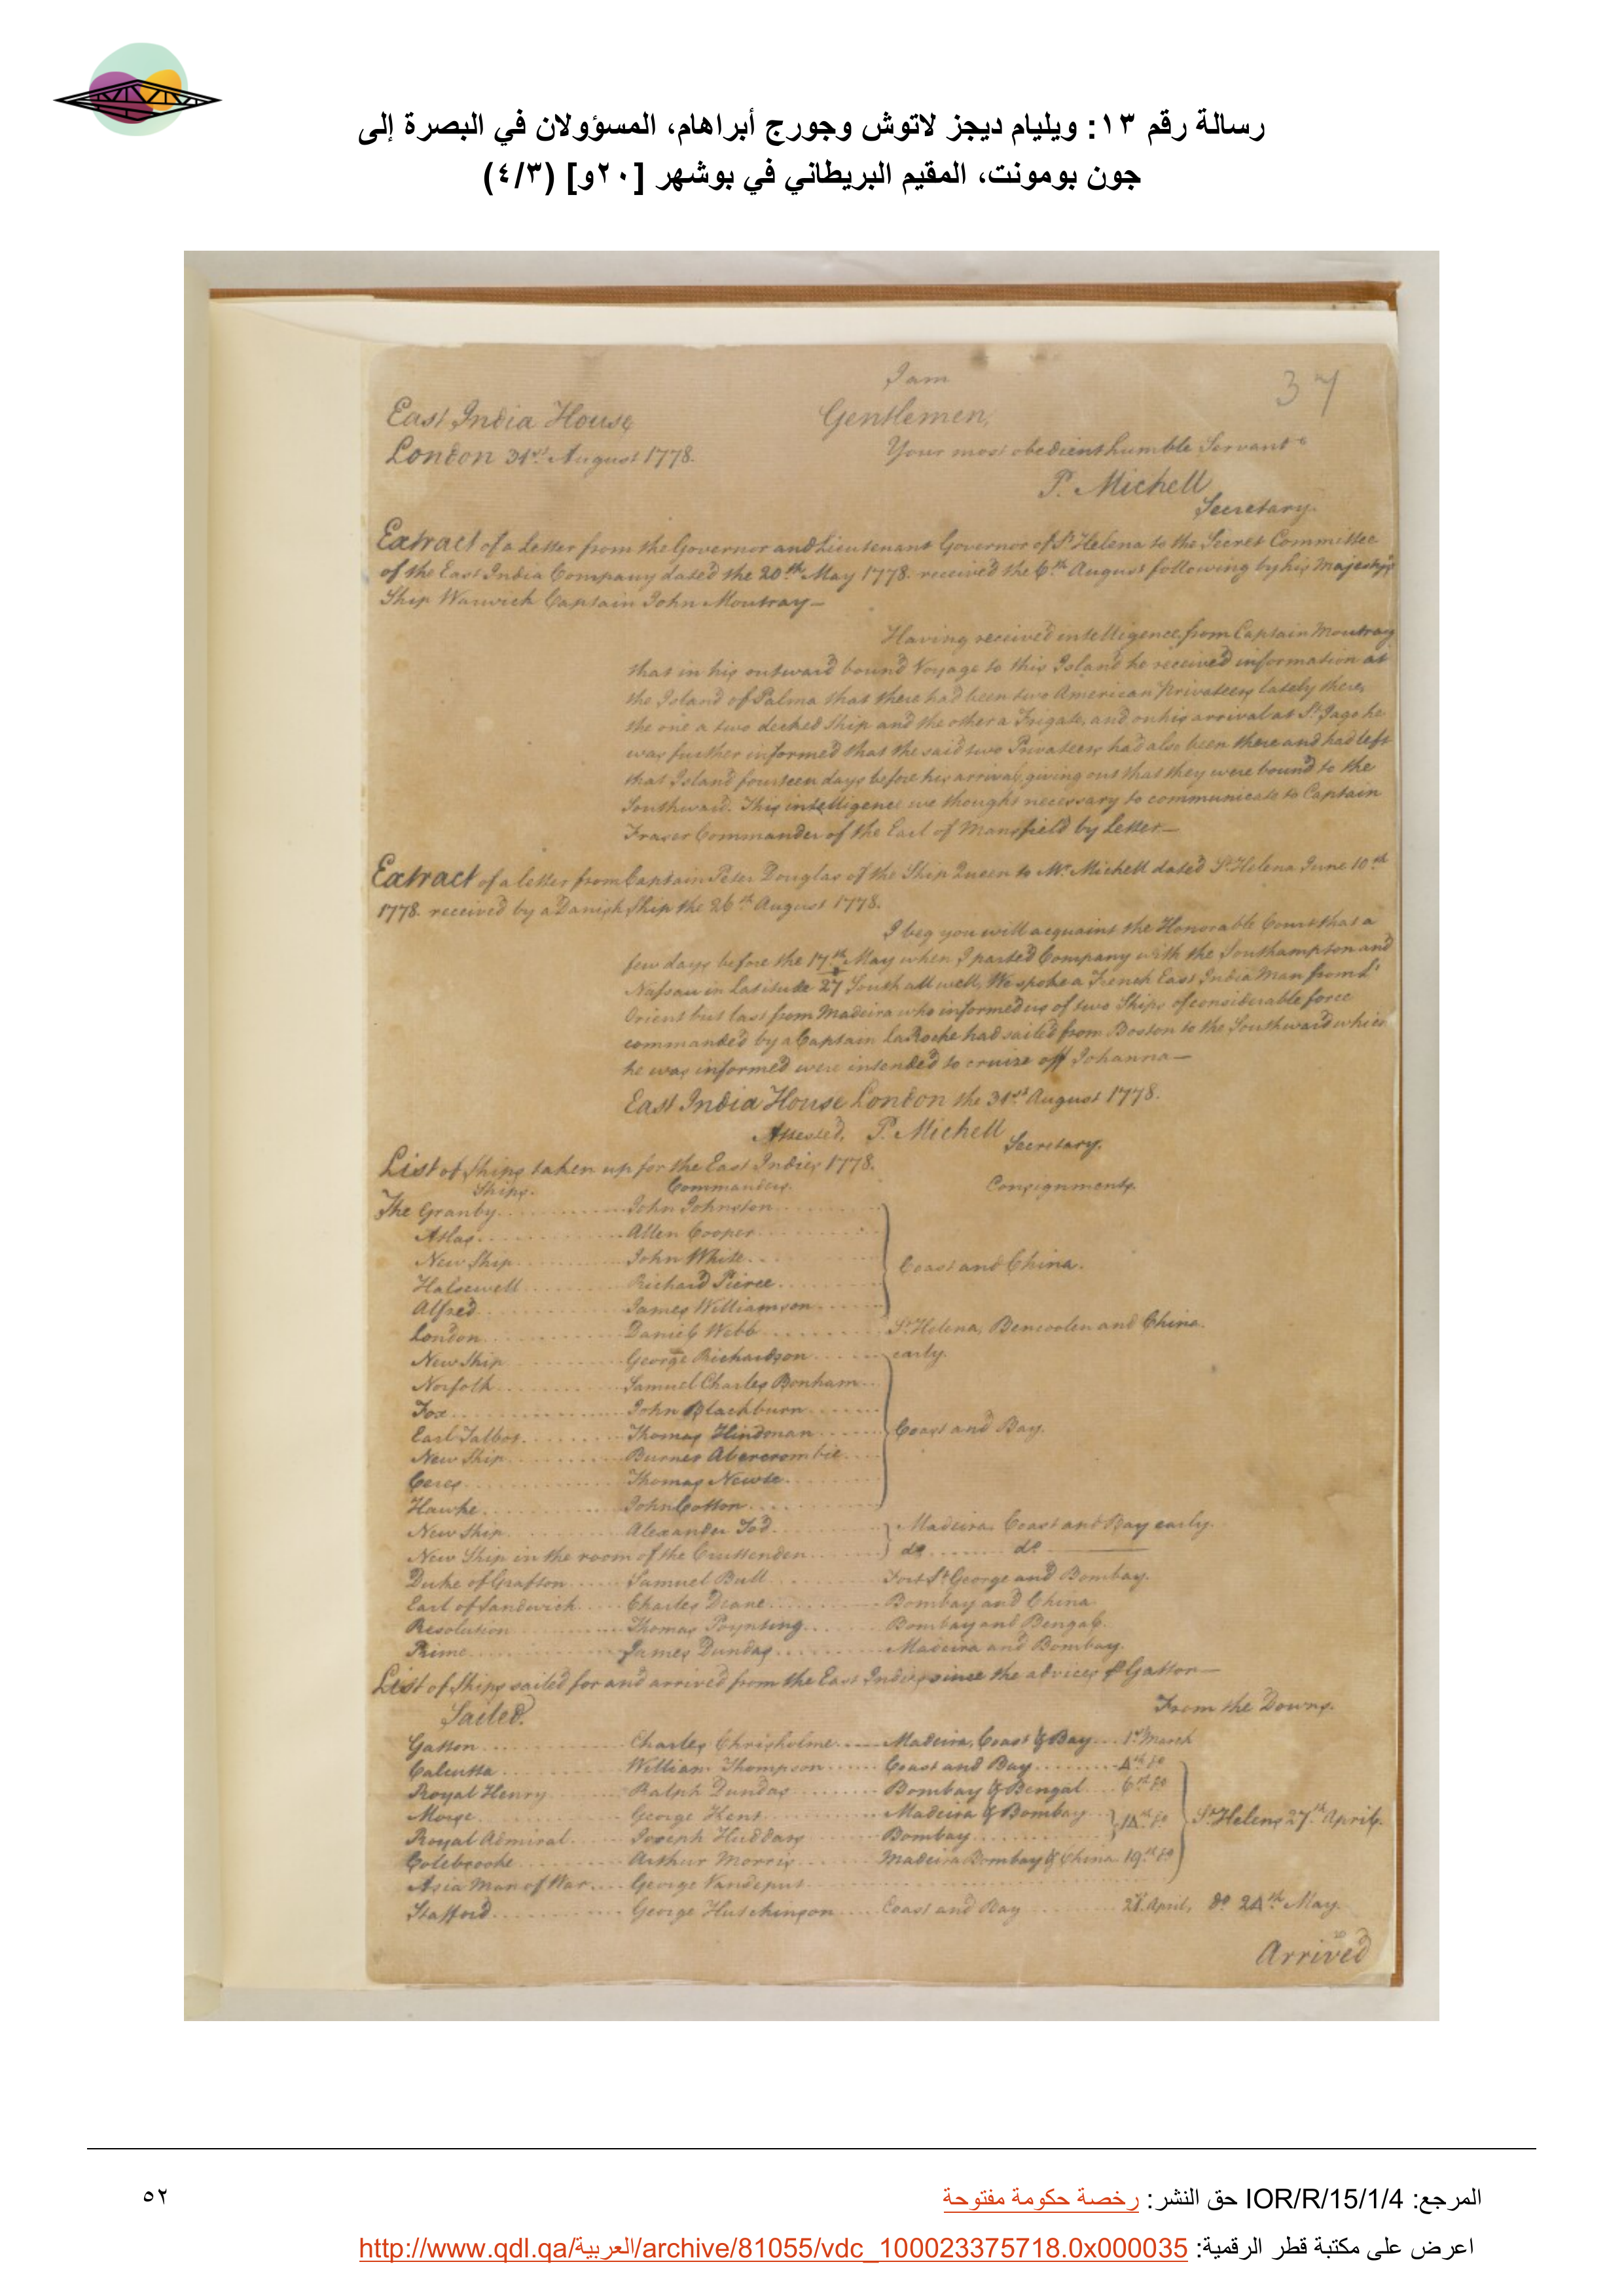 رسالة رقم ١٣: ويليام ديجز لاتوش وجورج أبراهام، المسؤولان في البصرة إلى
جون بومونت، المقيم البريطاني في بوشهر [٢٠و] (٤/٣)
I am
37
East India House
Gentlemen,
London 31st August 1778.
Your most obedient humble Servant
P. Michell
Secretary.
Extract of a Letter from the Governor and Lieutenant Governor of St Helena to the Secret Committee
of the East India Company dated the 20th May 1778. received the 6th August following by his Majesty's
Ship Warwick Captain John Moutray—
Having received intelligence from Captain Moutray
that in his outward bound Voyage to this Island he received information at
the Island of Palma that there had been two American Privateers lately there,
the one a two decked Ship and the other a Frigate, and on his arrival at St Jago he
was further informed that the said two Privateers had also been there and had left
that Island fourteen days before his arrival, giving out that they were bound to the
Southward. This intelligence we thought necessary to communicate to Captain
Fraser Commander of the Earl of Mansfield by Letter—
Extract of a letter from Captain Peter Douglas of the Ship Queen to Mr Michell dated St Helena June 10th
1778. received by a Danish Ship the 26th August 1778.
I beg you will acquaint the Honorable Court that a
few days before the 17th May when I parted Company with the Southampton and
Nassau in Latitude 27 South all well, We spoke a French East India Man from L'
Orient but last from Madeira who informed us of two Ships of considerable force
commanded by a Captain LaRoche had sailed from Boston to the Southward which
he was informed were intended to cruize off Johanna—
East India House London the 31st August 1778.
Attested, P. Michell Secretary.
List of Ships taken up for the East Indies 1778.
Ships. Commanders. Consignments.
The Granby John Johnston
Atlas Allen Cooper
New Ship John White
Coast and China.
Halsewell Richard Pierce
Alfred James Williamson
London Daniel Webb St Helena, Bencoolen and China.
New Ship George Richardson early.
Norfolk Samuel Charles Bonham
Fox John Blackburn
Earl Talbot Thomas Hindman Coast and Bay.
New Ship Burnet Abercrombie
Ceres Thomas Newte
Hawke John Cotton
New Ship Alexander Tod Madeira, Coast and Bay early.
New Ship in the room of the Cruttenden do do
Duke of Grafton Samuel Bull Fort St George and Bombay.
Earl of Sandwich Charles Deane Bombay and China
Resolution Thomas Poynting Bombay and Bengal.
Prime James Dundas Madeira and Bombay.
List of Ships sailed for and arrived from the East Indies since the advices p Gatton—
Sailed. From the Downs.
Gatton Charles Chrisholme Madeira, Coast & Bay 1st March
Calcutta William Thompson Coast and Bay 4th do
Royal Henry Ralph Dundas Bombay & Bengal 6th do
Morse George Kent Madeira & Bombay 14th do St Helens 27th April.
Royal Admiral Joseph Huddart Bombay
Colebrooke Arthur Morris Madeira Bombay & China 19th do
Asia Man of War George Vandeput
Stafford George Hutchinson Coast and Bay 28. April, do 24th May.
Arrived
المرجع: IOR/R/15/1/4 حق النشر: رخصة حكومة مفتوحة
٥٢
اعرض على مكتبة قطر الرقمية: http://www.qdl.qa/العربية/archive/81055/vdc_100023375718.0x000035